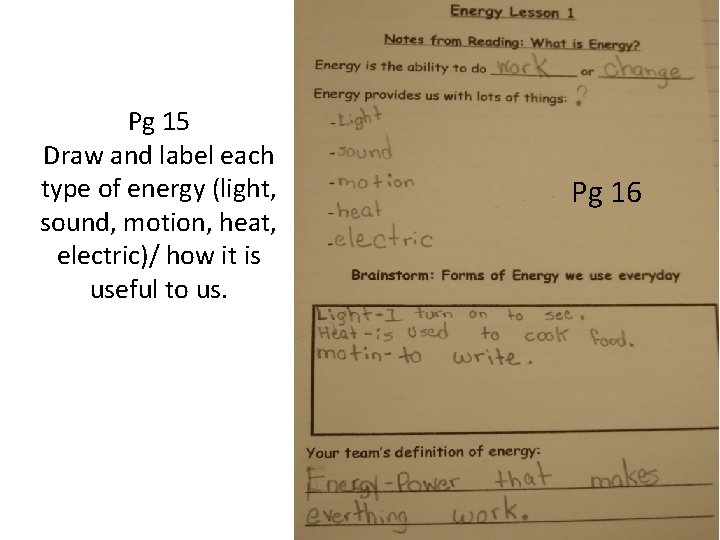 Pg 15
Draw and label each
type of energy (light,
sound, motion, heat,
electric)/ how it is
useful to us.
Energy Lesson 1
Notes from Reading: What is Energy?
Energy is the ability to do work or change
Energy provides us with lots of things: ?
-Light
-sound
-motion
-heat
-electric
Pg 16
Brainstorm: Forms of Energy we use everyday
Light-I turn on to see.
Heat-is used to cook food.
motin-to write.
Your team's definition of energy:
Energy-Power that makes
everthing work.